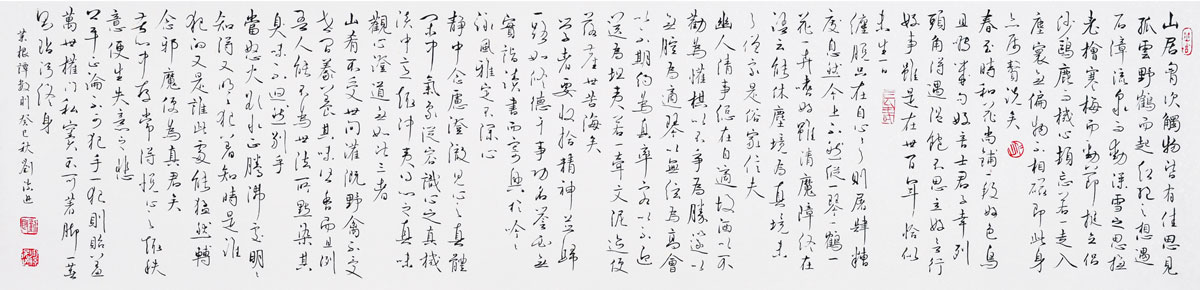 山居胸次觸物皆有佳思見
孤雲野鶴而起超絕之想遇
石澗流泉而動澡雪之思撫
老檜寒梅而勁節挺立侶
沙鷗麋鹿而機心頓忘若走入
塵寰無論物不相關即此身
亦屬贅旒矣
春至時和花尚鋪一段好色鳥
且囀幾句好音士君子幸列
頭角復遇溫飽不思立好言行
好事雖是在世百年恰似
未生一日
纏脫只在自心心了則屠肆糟
居然淨土不然縱一琴一鶴一
花一卉嗜好雖清魔障終在
語云能休塵境為真境未
了僧家是俗家信夫
幽人清事總在自適故酒以不
勸為懽棋以不爭為勝笛以
無腔為適琴以無弦為高會
以不期約為真率客以不迎
送為坦夷若一牽文泥跡便
落塵世苦海矣
學者要收拾精神並歸
一路如修德於事功名譽必無
實詣讀書而寄興於吟
咏風雅定不深心
靜中念慮澄澈見心之真體
閒中氣象從容識心之真機
淡中意趣沖夷得心之真味
觀心證道無如此三者
山肴不受世間灌溉野禽不受
世間豢養其味皆香而且冽
吾人能不為世法所點染其
臭味不迥然別乎
當怒火慾水正騰沸處明明
知得又明明犯着知得是誰
犯的又是誰此處能猛然轉
念邪魔便為真君矣
苦心中常得悅心之趣得
意便生失意之悲
公平正論不可犯手一犯則貽羞
萬世權門私竇不可著脚一著
則玷污終身
菜根譚數則癸巳秋劉